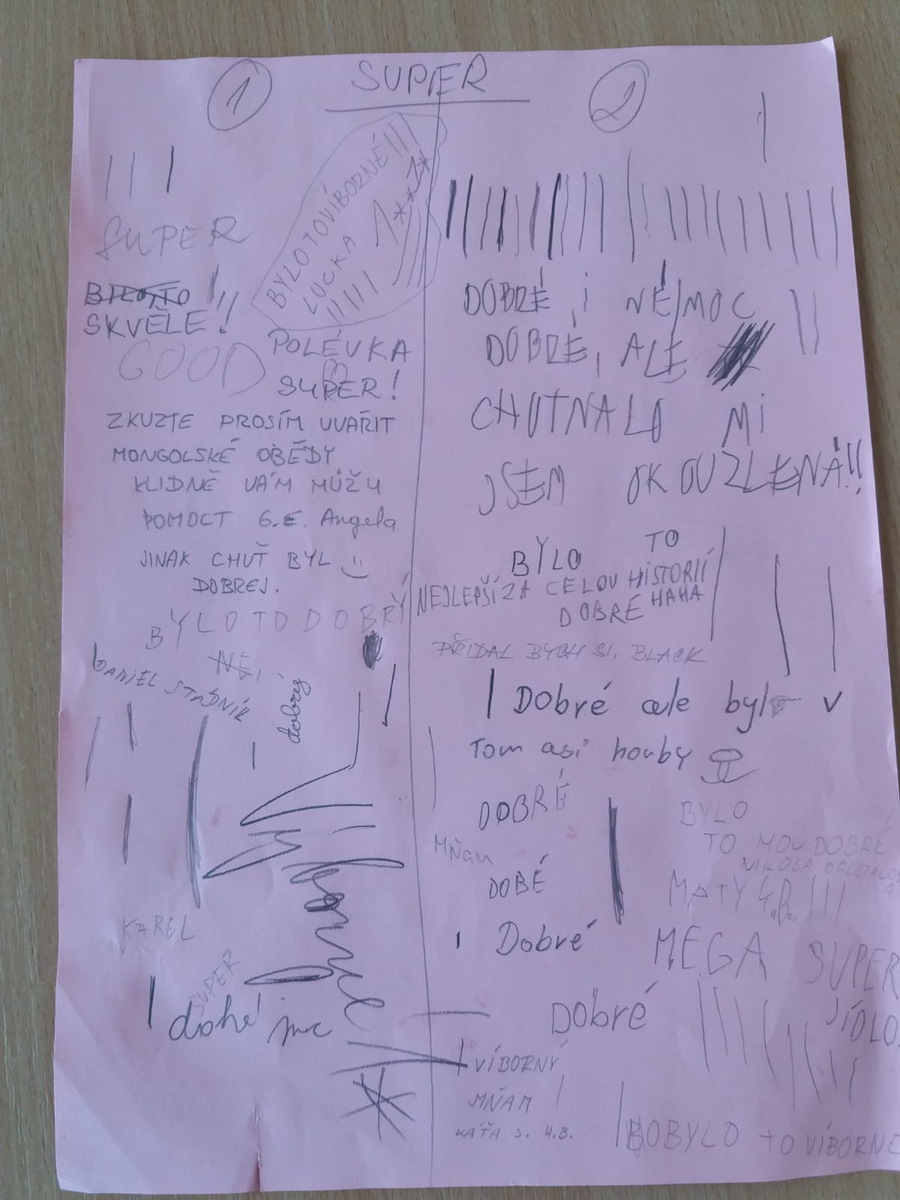 SUPER
1
2
SUPER
BYLO TO VÍBORNÉ!!!
LUCKA
SKVĚLE!!
GOOD
POLÉVKA
SUPER!
ZKUZTE PROSÍM UVAŘIT
MONGOLSKÉ OBĚDY
KLIDNĚ VÁM MŮŽU
POMOCT 6.E. Angela
JINAK CHUŤ BYL
DOBREJ.
BYLO TO DOBRÝ
DANIEL STAŠNÍK
dobrý
KAREL
SUPER
DOBRÉ, i NĚ/MOC
DOBRÉ, ALE
CHUTNALO MI
JSEM OKOUZLENÁ!!
BYLO TO
NEJLEPŠÍ ZA CELOU HISTORII
DOBRÉ HAHA
PŘIDAL BYCH SI. BLACK
Dobré ale bylo v
Tom asi houby
DOBRÉ
MŇAM
DOBÉ
Dobré
BYLO
TO MOU DOBRÉ
NIKOLA
MATY 4.B
MEGA SUPER
JÍDLO
Dobré
VÍBORNÝ
MŇAM
KÁŤA S. 4.B.
BOBYLO TO VÍBORNE